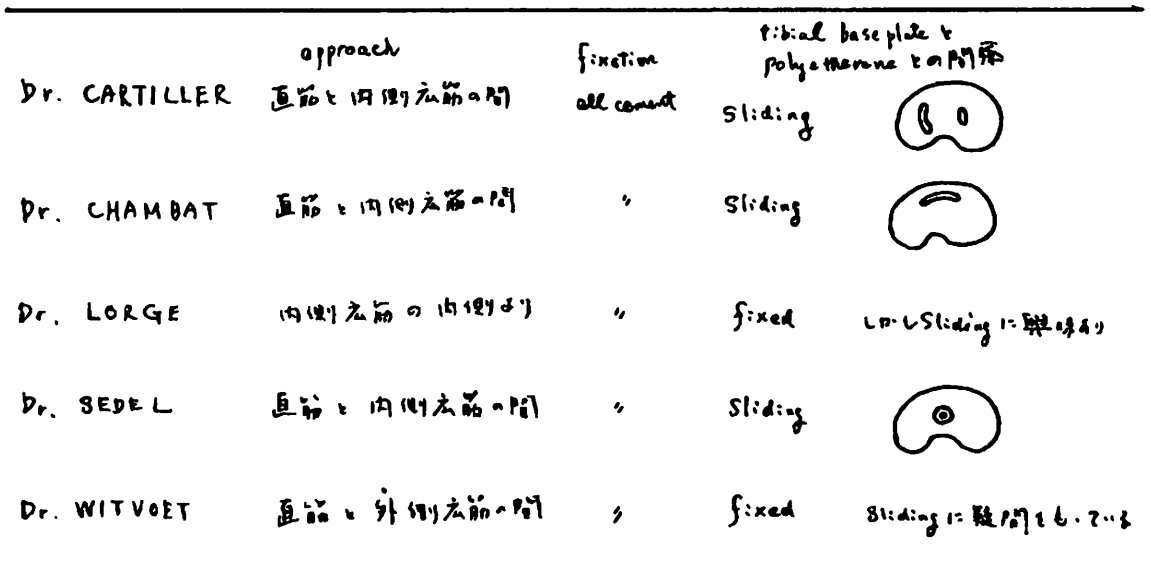 approach fixation tibial base plate と
polyetherene との関係
Dr. CARTILLER 直筋と内側広筋の間 all cement Sliding
Dr. CHAMBAT 直筋と内側広筋の間 〃 Sliding
Dr. LORGE 内側広筋の内側より 〃 fixed しかしSlidingに興味あり
Dr. SEDEL 直筋と内側広筋の間 〃 Sliding
Dr. WITVOET 直筋と外側広筋の間 〃 fixed Slidingに疑問をもっている